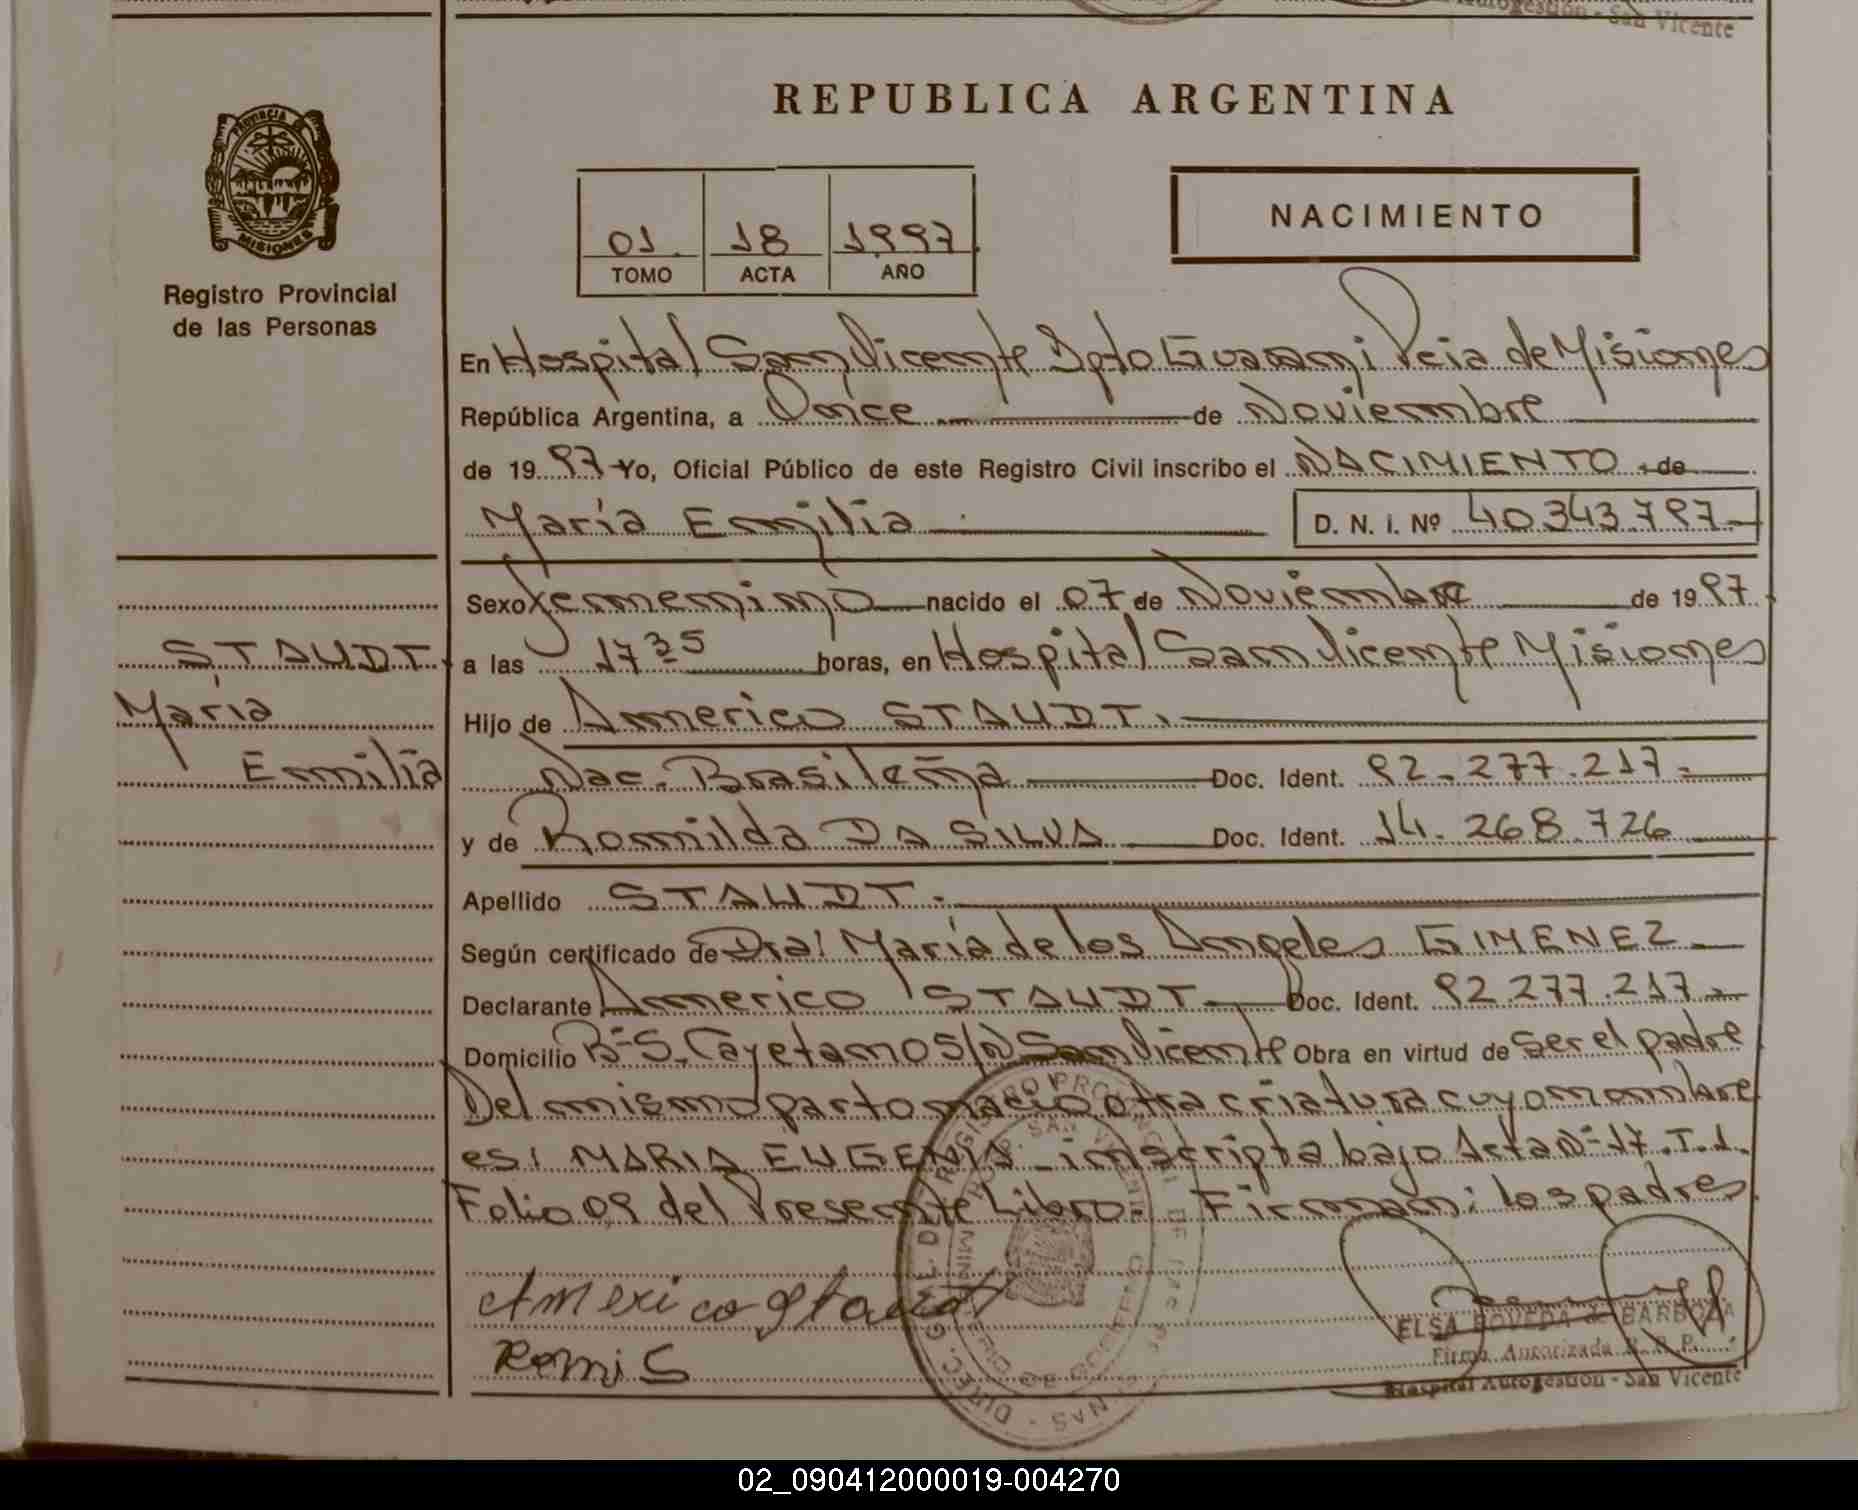 Autogestión - San Vicente
REPUBLICA ARGENTINA
PROVINCIA DE
MISIONES
Registro Provincial
de las Personas
01 18 1997
TOMO ACTA AÑO
NACIMIENTO
En Hospital San Vicente Dpto Guarani Pcia de Misiones
República Argentina, a Once de Noviembre
de 19 97 Yo, Oficial Público de este Registro Civil inscribo el NACIMIENTO de
María Emilia D. N. I. Nº 40.343.797
Sexo femenino nacido el 07 de Noviembre de 19 97
STAUDT a las 17 35 horas, en Hospital San Vicente Misiones
María Hijo de Americo STAUDT.
Emilia Nac. Brasileña Doc. Ident. 92.277.217
y de Romilda DA SILVA Doc. Ident. 14.268.726
Apellido STAUDT.
Según certificado de Dra: María de los Angeles GIMENEZ
Declarante Americo STAUDT Doc. Ident. 92.277.217
Domicilio Bº S. Cayetano S/N San Vicente Obra en virtud de ser el padre
Del mismo parto nació otra criatura cuyo nombre
es: MARIA EUGENIA inscripta bajo Acta Nº 17. T. 1.
Folio 09 del Presente Libro. Firman: los padres
Americo Staudt
Romi S
ELSA BOVEDA de BARBOZA
Firma Autorizada R. R. P.
Hospital Autogestión - San Vicente
02_090412000019-004270